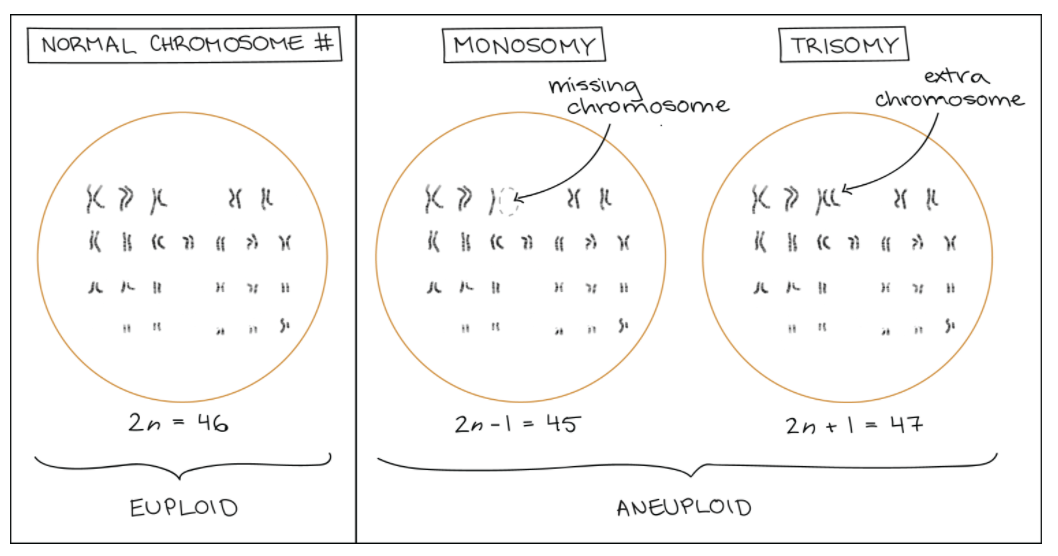 NORMAL CHROMOSOME #
2n = 46
EUPLOID
MONOSOMY
missing
chromosome
2n-1 = 45
TRISOMY
extra
chromosome
2n + 1 = 47
ANEUPLOID